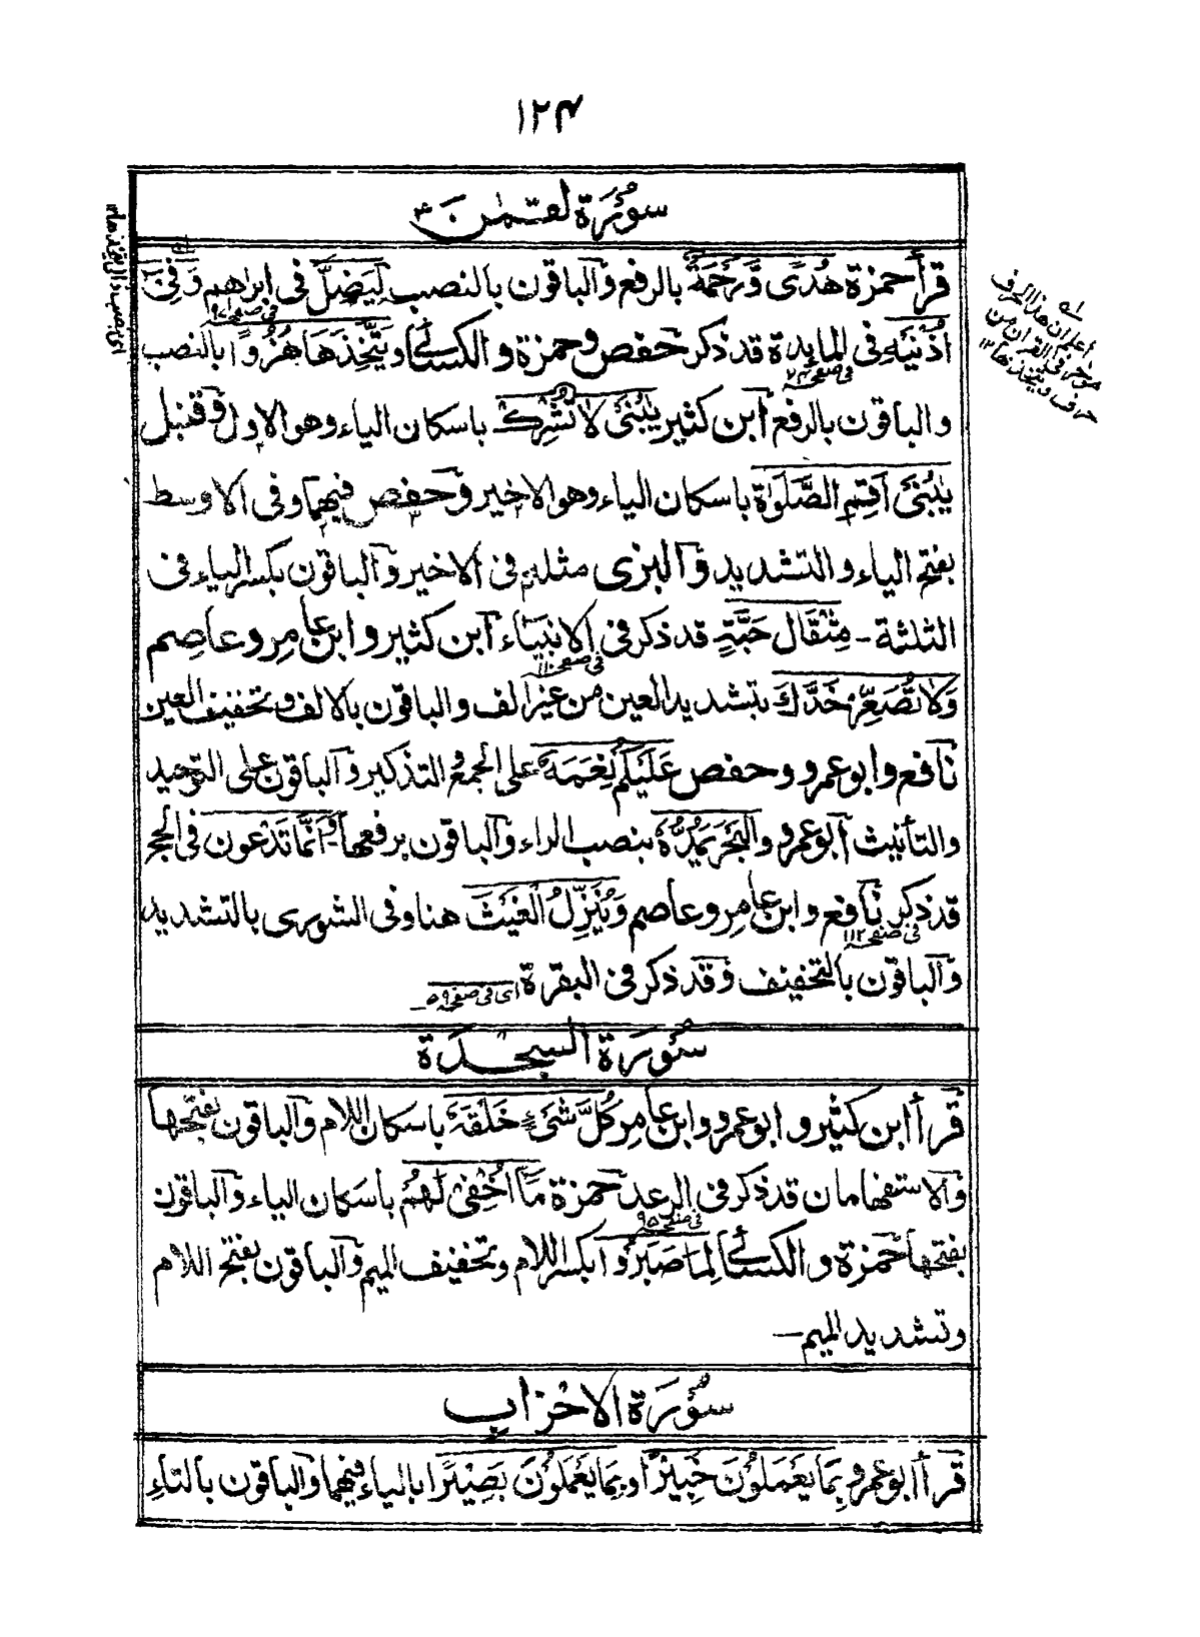 ١٢٤
سورة لقمٰن
قرأ حمزة هُدًى وَّرَحْمَةٌ بالرفع والباقون بالنصب لِيَضِلَّ فى ابراهيم وَفِىٓ
فى صفحه ٩٧
أُذُنَيْهِ فى المايدة قد ذكر حفص وحمزة والكسائى ويَتَّخِذَهَا هُزُوًا بالنصب
فى صفحه ٧٤
والباقون بالرفع ابن كثير يٰبُنَىْ لَا تُشْرِكْ باسكان الياء وهو الاول وقنبل
يٰبُنَىْ اَقِمِ الصَّلَوٰةَ باسكان الياء وهو الاخير وحفص فيهما وفى الاوسط
بفتح الياء والتشديد والبزى مثله فى الاخير والباقون بكسر الياء فى
الثلثة - مِثْقَالَ حَبَّةٍ قد ذكر فى الانبياء ابن كثير وابن عامر وعاصم
فى صفحه ١١٠
وَلَا تُصَعِّرْ خَدَّكَ بتشديد العين من غير الف والباقون بالالف وتخفيف العين
نافع وابو عمرو وحفص عَلَيْكُمْ نِعَمَهٗ على الجمع والتذكير والباقون على التوحيد
والتأنيث ابو عمرو والْبَحْرَ يَمُدُّهٗ بنصب الراء والباقون برفعها - وَاَنَّمَا تَدْعُونَ فى الحج
قد ذكر نافع وابن عامر وعاصم وَيُنَزِّلُ الْغَيْثَ هنا وفى الشورى بالتشديد
فى صفحه ١١٢
والباقون بالتخفيف وقد ذكر فى البقرة اى فى صفحه ٥٩ -
سورة السجدة
قرأ ابن كثير وابو عمرو وابن عامر كُلَّ شَىْءٍ خَلْقَهٗ باسكان اللام والباقون بفتحها
والاستفهامان قد ذكر فى الرعد حمزة مَا اُخْفِىْ لَهُمْ باسكان الياء والباقون
فى صفحه ٩٥
بفتحها حمزة والكسائى لِمَا صَبَرُوْا بكسر اللام وتخفيف الميم والباقون بفتح اللام
وتشديد الميم —
سورة الاحزاب
قرأ ابو عمرو بِمَا يَعْمَلُوْنَ خَبِيْرًا وبِمَا يَعْمَلُوْنَ بَصِيْرًا بالياء فيهما والباقون بالتاء